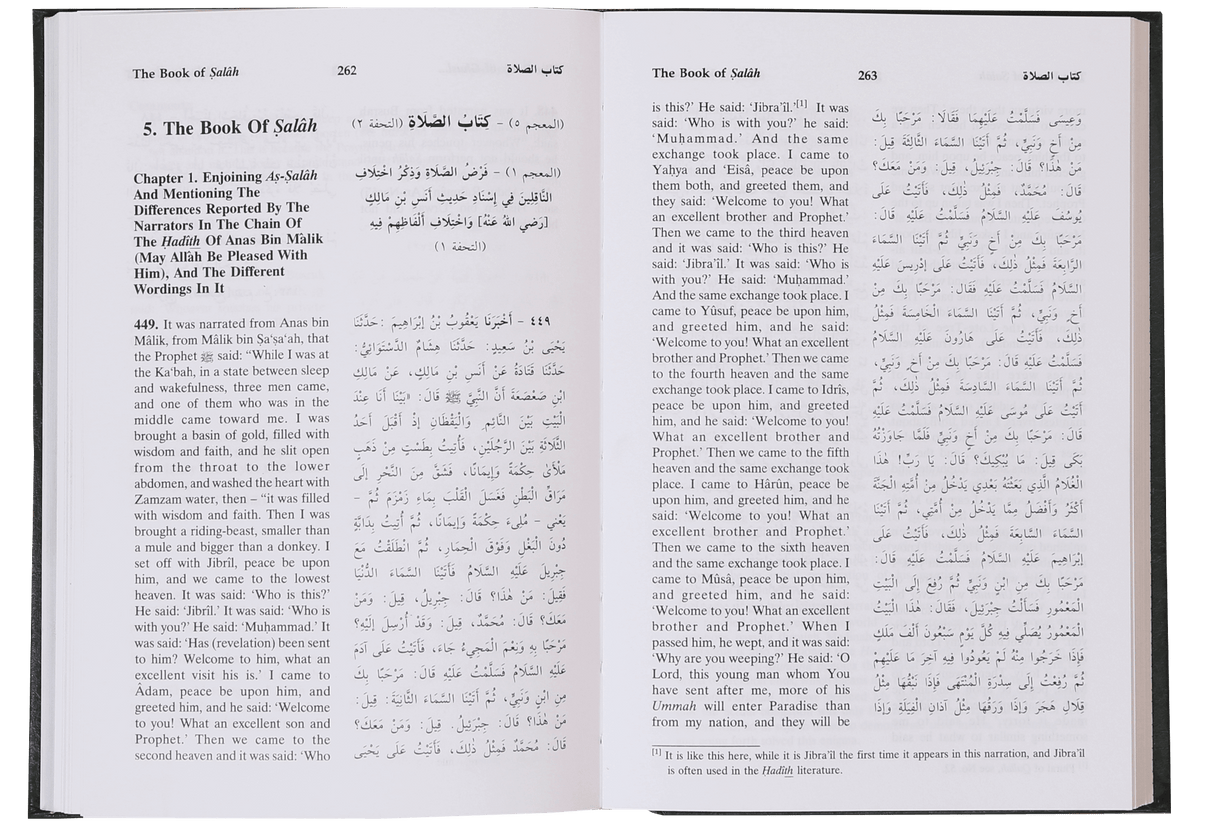 The Book of Ṣalâh 262 كتاب الصلاة
5. The Book Of Ṣalâh
(المعجم ٥) - كِتَابُ الصَّلَاةِ (التحفة ٢)
Chapter 1. Enjoining Aṣ-Ṣalâh
And Mentioning The
Differences Reported By The
Narrators In The Chain Of
The Ḥadîth Of Anas Bin Mâlik
(May Allâh Be Pleased With
Him), And The Different
Wordings In It
(المعجم ١) - فَرْضُ الصَّلَاةِ وَذِكْرُ اخْتِلَافِ
النَّاقِلِينَ فِي إِسْنَادِ حَدِيثِ أَنَسِ بْنِ مَالِكٍ
[رَضِي اللهُ عَنْهُ] وَاخْتِلَافِ أَلْفَاظِهِمْ فِيهِ
(التحفة ١)
449. It was narrated from Anas bin
Mâlik, from Mâlik bin Ṣa'ṣa'ah, that
the Prophet ﷺ said: “While I was at
the Ka'bah, in a state between sleep
and wakefulness, three men came,
and one of them who was in the
middle came toward me. I was
brought a basin of gold, filled with
wisdom and faith, and he slit open
from the throat to the lower
abdomen, and washed the heart with
Zamzam water, then – “it was filled
with wisdom and faith. Then I was
brought a riding-beast, smaller than
a mule and bigger than a donkey. I
set off with Jibrîl, peace be upon
him, and we came to the lowest
heaven. It was said: ‘Who is this?’
He said: ‘Jibrîl.’ It was said: ‘Who is
with you?’ He said: ‘Muḥammad.’ It
was said: ‘Has (revelation) been sent
to him? Welcome to him, what an
excellent visit his is.’ I came to
Âdam, peace be upon him, and
greeted him, and he said: ‘Welcome
to you! What an excellent son and
Prophet.’ Then we came to the
second heaven and it was said: ‘Who
٤٤٩ - أَخْبَرَنَا يَعْقُوبُ بْنُ إِبْرَاهِيمَ: حَدَّثَنَا
يَحْيَى بْنُ سَعِيدٍ: حَدَّثَنَا هِشَامٌ الدَّسْتَوَائِيُّ:
حَدَّثَنَا قَتَادَةُ عَنْ أَنَسِ بْنِ مَالِكٍ، عَنْ مَالِكِ
ابْنِ صَعْصَعَةَ أَنَّ النَّبِيَّ ﷺ قَالَ: «بَيْنَا أَنَا عِنْدَ
الْبَيْتِ بَيْنَ النَّائِمِ وَالْيَقْظَانِ إِذْ أَقْبَلَ أَحَدُ
الثَّلَاثَةِ بَيْنَ الرَّجُلَيْنِ، فَأُتِيتُ بِطَسْتٍ مِنْ ذَهَبٍ
مَلْأَى حِكْمَةً وَإِيمَانًا، فَشَقَّ مِنَ النَّحْرِ إِلَى
مَرَاقِّ الْبَطْنِ فَغَسَلَ الْقَلْبَ بِمَاءِ زَمْزَمَ ثُمَّ -
يَعْنِي - مُلِىءَ حِكْمَةً وَإِيمَانًا، ثُمَّ أُتِيتُ بِدَابَّةٍ
دُونَ الْبَغْلِ وَفَوْقَ الْحِمَارِ، ثُمَّ انْطَلَقْتُ مَعَ
جِبْرِيلَ عَلَيْهِ السَّلَامُ فَأَتَيْنَا السَّمَاءَ الدُّنْيَا
فَقِيلَ: مَنْ هٰذَا؟ قَالَ: جِبْرِيلُ، قِيلَ: وَمَنْ
مَعَكَ؟ قَالَ: مُحَمَّدٌ، قِيلَ: وَقَدْ أُرْسِلَ إِلَيْهِ؟
مَرْحَبًا بِهِ وَنِعْمَ الْمَجِيءُ جَاءَ، فَأَتَيْتُ عَلَى آدَمَ
عَلَيْهِ السَّلَامُ فَسَلَّمْتُ عَلَيْهِ قَالَ: مَرْحَبًا بِكَ
مِنِ ابْنٍ وَنَبِيٍّ، ثُمَّ أَتَيْنَا السَّمَاءَ الثَّانِيَةَ: قِيلَ:
مَنْ هٰذَا؟ قَالَ: جِبْرَئِيلُ. قِيلَ: وَمَنْ مَعَكَ؟
قَالَ: مُحَمَّدٌ فَمِثْلُ ذٰلِكَ، فَأَتَيْتُ عَلَى يَحْيَى
The Book of Ṣalâh 263 كتاب الصلاة
is this?’ He said: ‘Jibra’îl.’[1] It was
said: ‘Who is with you?’ he said:
‘Muḥammad.’ And the same
exchange took place. I came to
Yaḥya and ‘Eisâ, peace be upon
them both, and greeted them, and
they said: ‘Welcome to you! What
an excellent brother and Prophet.’
Then we came to the third heaven
and it was said: ‘Who is this?’ He
said: ‘Jibra’îl.’ It was said: ‘Who is
with you?’ He said: ‘Muḥammad.’
And the same exchange took place. I
came to Yûsuf, peace be upon him,
and greeted him, and he said:
‘Welcome to you! What an excellent
brother and Prophet.’ Then we came
to the fourth heaven and the same
exchange took place. I came to Idrîs,
peace be upon him, and greeted
him, and he said: ‘Welcome to you!
What an excellent brother and
Prophet.’ Then we came to the fifth
heaven and the same exchange took
place. I came to Hârûn, peace be
upon him, and greeted him, and he
said: ‘Welcome to you! What an
excellent brother and Prophet.’
Then we came to the sixth heaven
and the same exchange took place. I
came to Mûsâ, peace be upon him,
and greeted him, and he said:
‘Welcome to you! What an excellent
brother and Prophet.’ When I
passed him, he wept, and it was said:
‘Why are you weeping?’ He said: ‘O
Lord, this young man whom You
have sent after me, more of his
Ummah will enter Paradise than
from my nation, and they will be
وَعِيسَى فَسَلَّمْتُ عَلَيْهِمَا فَقَالَا: مَرْحَبًا بِكَ
مِنْ أَخٍ وَنَبِيٍّ، ثُمَّ أَتَيْنَا السَّمَاءَ الثَّالِثَةَ قِيلَ:
مَنْ هٰذَا؟ قَالَ: جِبْرَئِيلُ، قِيلَ: وَمَنْ مَعَكَ؟
قَالَ: مُحَمَّدٌ، فَمِثْلُ ذٰلِكَ، فَأَتَيْتُ عَلَى
يُوسُفَ عَلَيْهِ السَّلَامُ فَسَلَّمْتُ عَلَيْهِ قَالَ:
مَرْحَبًا بِكَ مِنْ أَخٍ وَنَبِيٍّ ثُمَّ أَتَيْنَا السَّمَاءَ
الرَّابِعَةَ فَمِثْلُ ذٰلِكَ، فَأَتَيْتُ عَلَى إِدْرِيسَ عَلَيْهِ
السَّلَامُ فَسَلَّمْتُ عَلَيْهِ فَقَالَ: مَرْحَبًا بِكَ مِنْ
أَخٍ وَنَبِيٍّ، ثُمَّ أَتَيْنَا السَّمَاءَ الْخَامِسَةَ فَمِثْلُ
ذٰلِكَ، فَأَتَيْتُ عَلَى هَارُونَ عَلَيْهِ السَّلَامُ
فَسَلَّمْتُ عَلَيْهِ قَالَ: مَرْحَبًا بِكَ مِنْ أَخٍ وَنَبِيٍّ،
ثُمَّ أَتَيْنَا السَّمَاءَ السَّادِسَةَ فَمِثْلُ ذٰلِكَ، ثُمَّ
أَتَيْتُ عَلَى مُوسَى عَلَيْهِ السَّلَامُ فَسَلَّمْتُ عَلَيْهِ
قَالَ: مَرْحَبًا بِكَ مِنْ أَخٍ وَنَبِيٍّ فَلَمَّا جَاوَزْتُهُ
بَكَى قِيلَ: مَا يُبْكِيكَ؟ قَالَ: يَا رَبِّ! هٰذَا
الْغُلَامُ الَّذِي بَعَثْتَهُ بَعْدِي يَدْخُلُ مِنْ أُمَّتِهِ الْجَنَّةَ
أَكْثَرُ وَأَفْضَلُ مِمَّا يَدْخُلُ مِنْ أُمَّتِي، ثُمَّ أَتَيْنَا
السَّمَاءَ السَّابِعَةَ فَمِثْلُ ذٰلِكَ، فَأَتَيْتُ عَلَى
إِبْرَاهِيمَ عَلَيْهِ السَّلَامُ فَسَلَّمْتُ عَلَيْهِ قَالَ:
مَرْحَبًا بِكَ مِنِ ابْنٍ وَنَبِيٍّ ثُمَّ رُفِعَ إِلَى الْبَيْتِ
الْمَعْمُورِ فَسَأَلْتُ جِبْرَئِيلَ، فَقَالَ: هٰذَا الْبَيْتُ
الْمَعْمُورُ يُصَلِّي فِيهِ كُلَّ يَوْمٍ سَبْعُونَ أَلْفَ مَلَكٍ
فَإِذَا خَرَجُوا مِنْهُ لَمْ يَعُودُوا فِيهِ آخِرَ مَا عَلَيْهِمْ
ثُمَّ رُفِعْتُ إِلَى سِدْرَةِ الْمُنْتَهَى فَإِذَا نَبْقُهَا مِثْلُ
قِلَالِ هَجَرَ وَإِذَا وَرَقُهَا مِثْلُ آذَانِ الْفِيَلَةِ وَإِذَا
[1] It is like this here, while it is Jibra’îl the first time it appears in this narration, and Jibra’îl
is often used in the Ḥadîth literature.